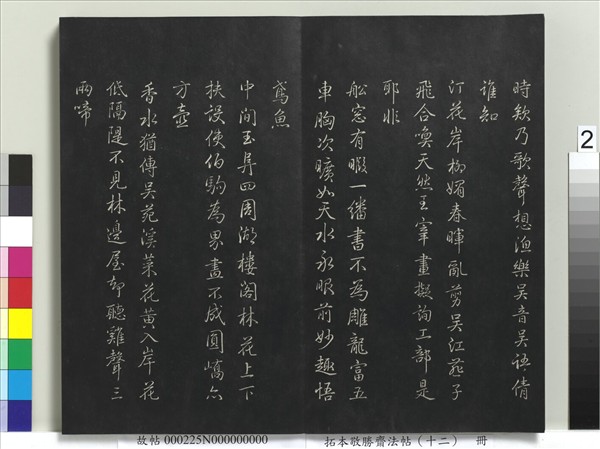 時欸乃歌聲想漁樂吳音吳語倩
誰知
汀花岸柳媚春暉亂剪吳江燕子
飛合喚天然王宰畫擬詢工部是
耶非
舩窓有暇一繙書不為雕龍富五
車胸次曠如天水永眼前妙趣悟
鳶魚
中間玉界四周湖樓閣林花上下
扶設使伯駒為界畫不成圓嶠亦
方壺
香水猶傳吳苑溪菜花黃入岸花
低隔隄不見林邊屋却聽雞聲三
兩啼
2
故帖 000225N000000000
拓本敬勝齋法帖(十二) 冊